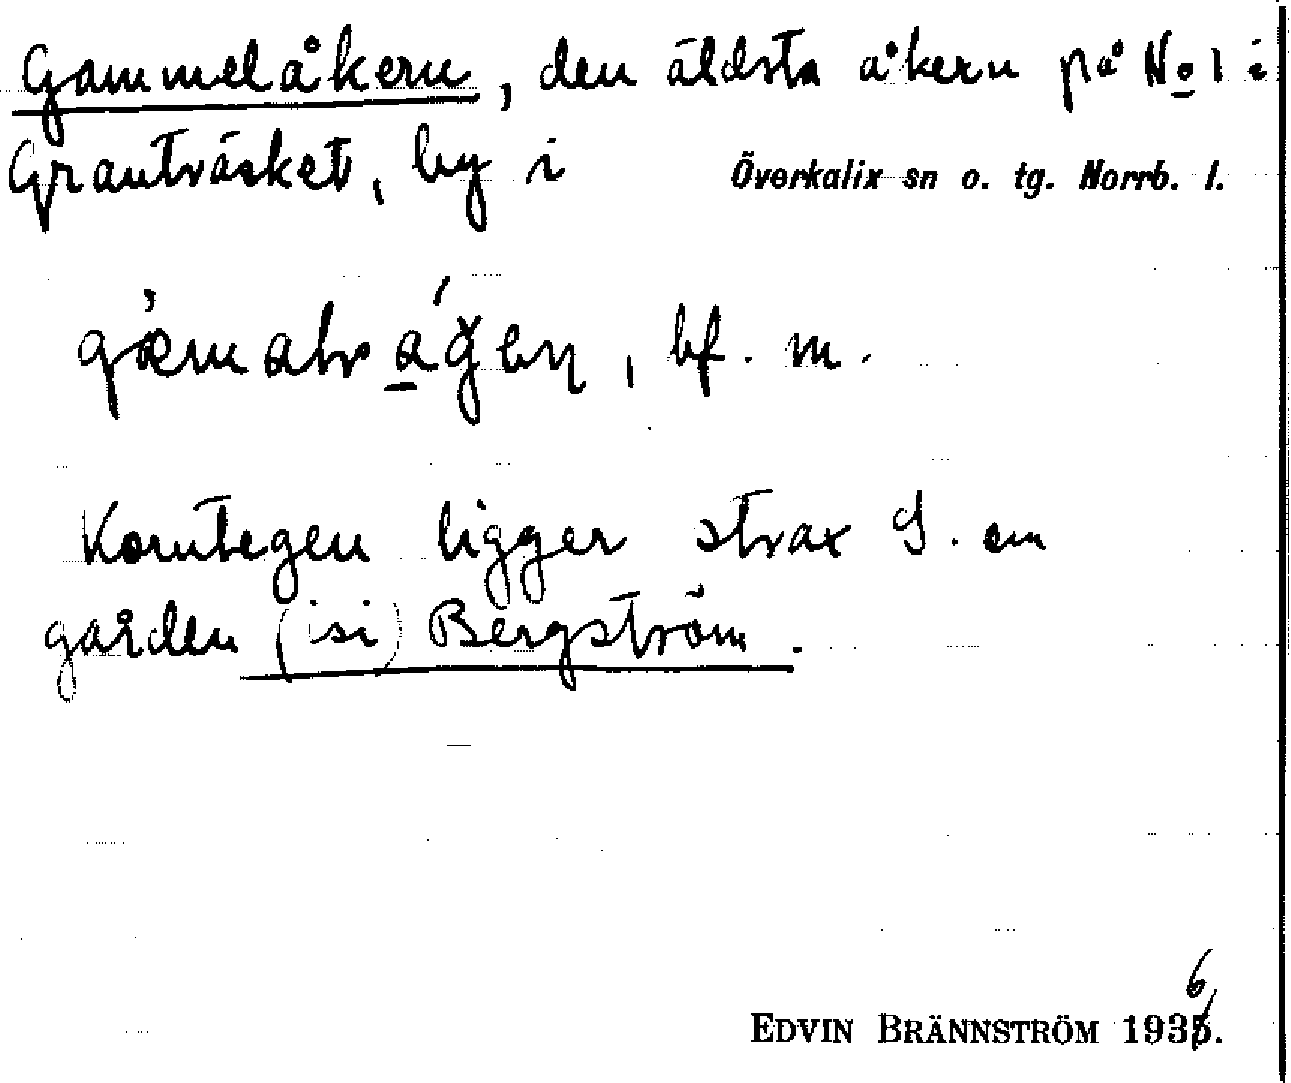 Gammelåkern, den äldsta åkern på No 1 i
Granträsket, by i Överkalix sn o. tg. Norrb. l.
bf. m.
Korntegen ligger strax S. om
gården (isi) Bergström.
6
EDVIN BRÄNNSTRÖM 1935.